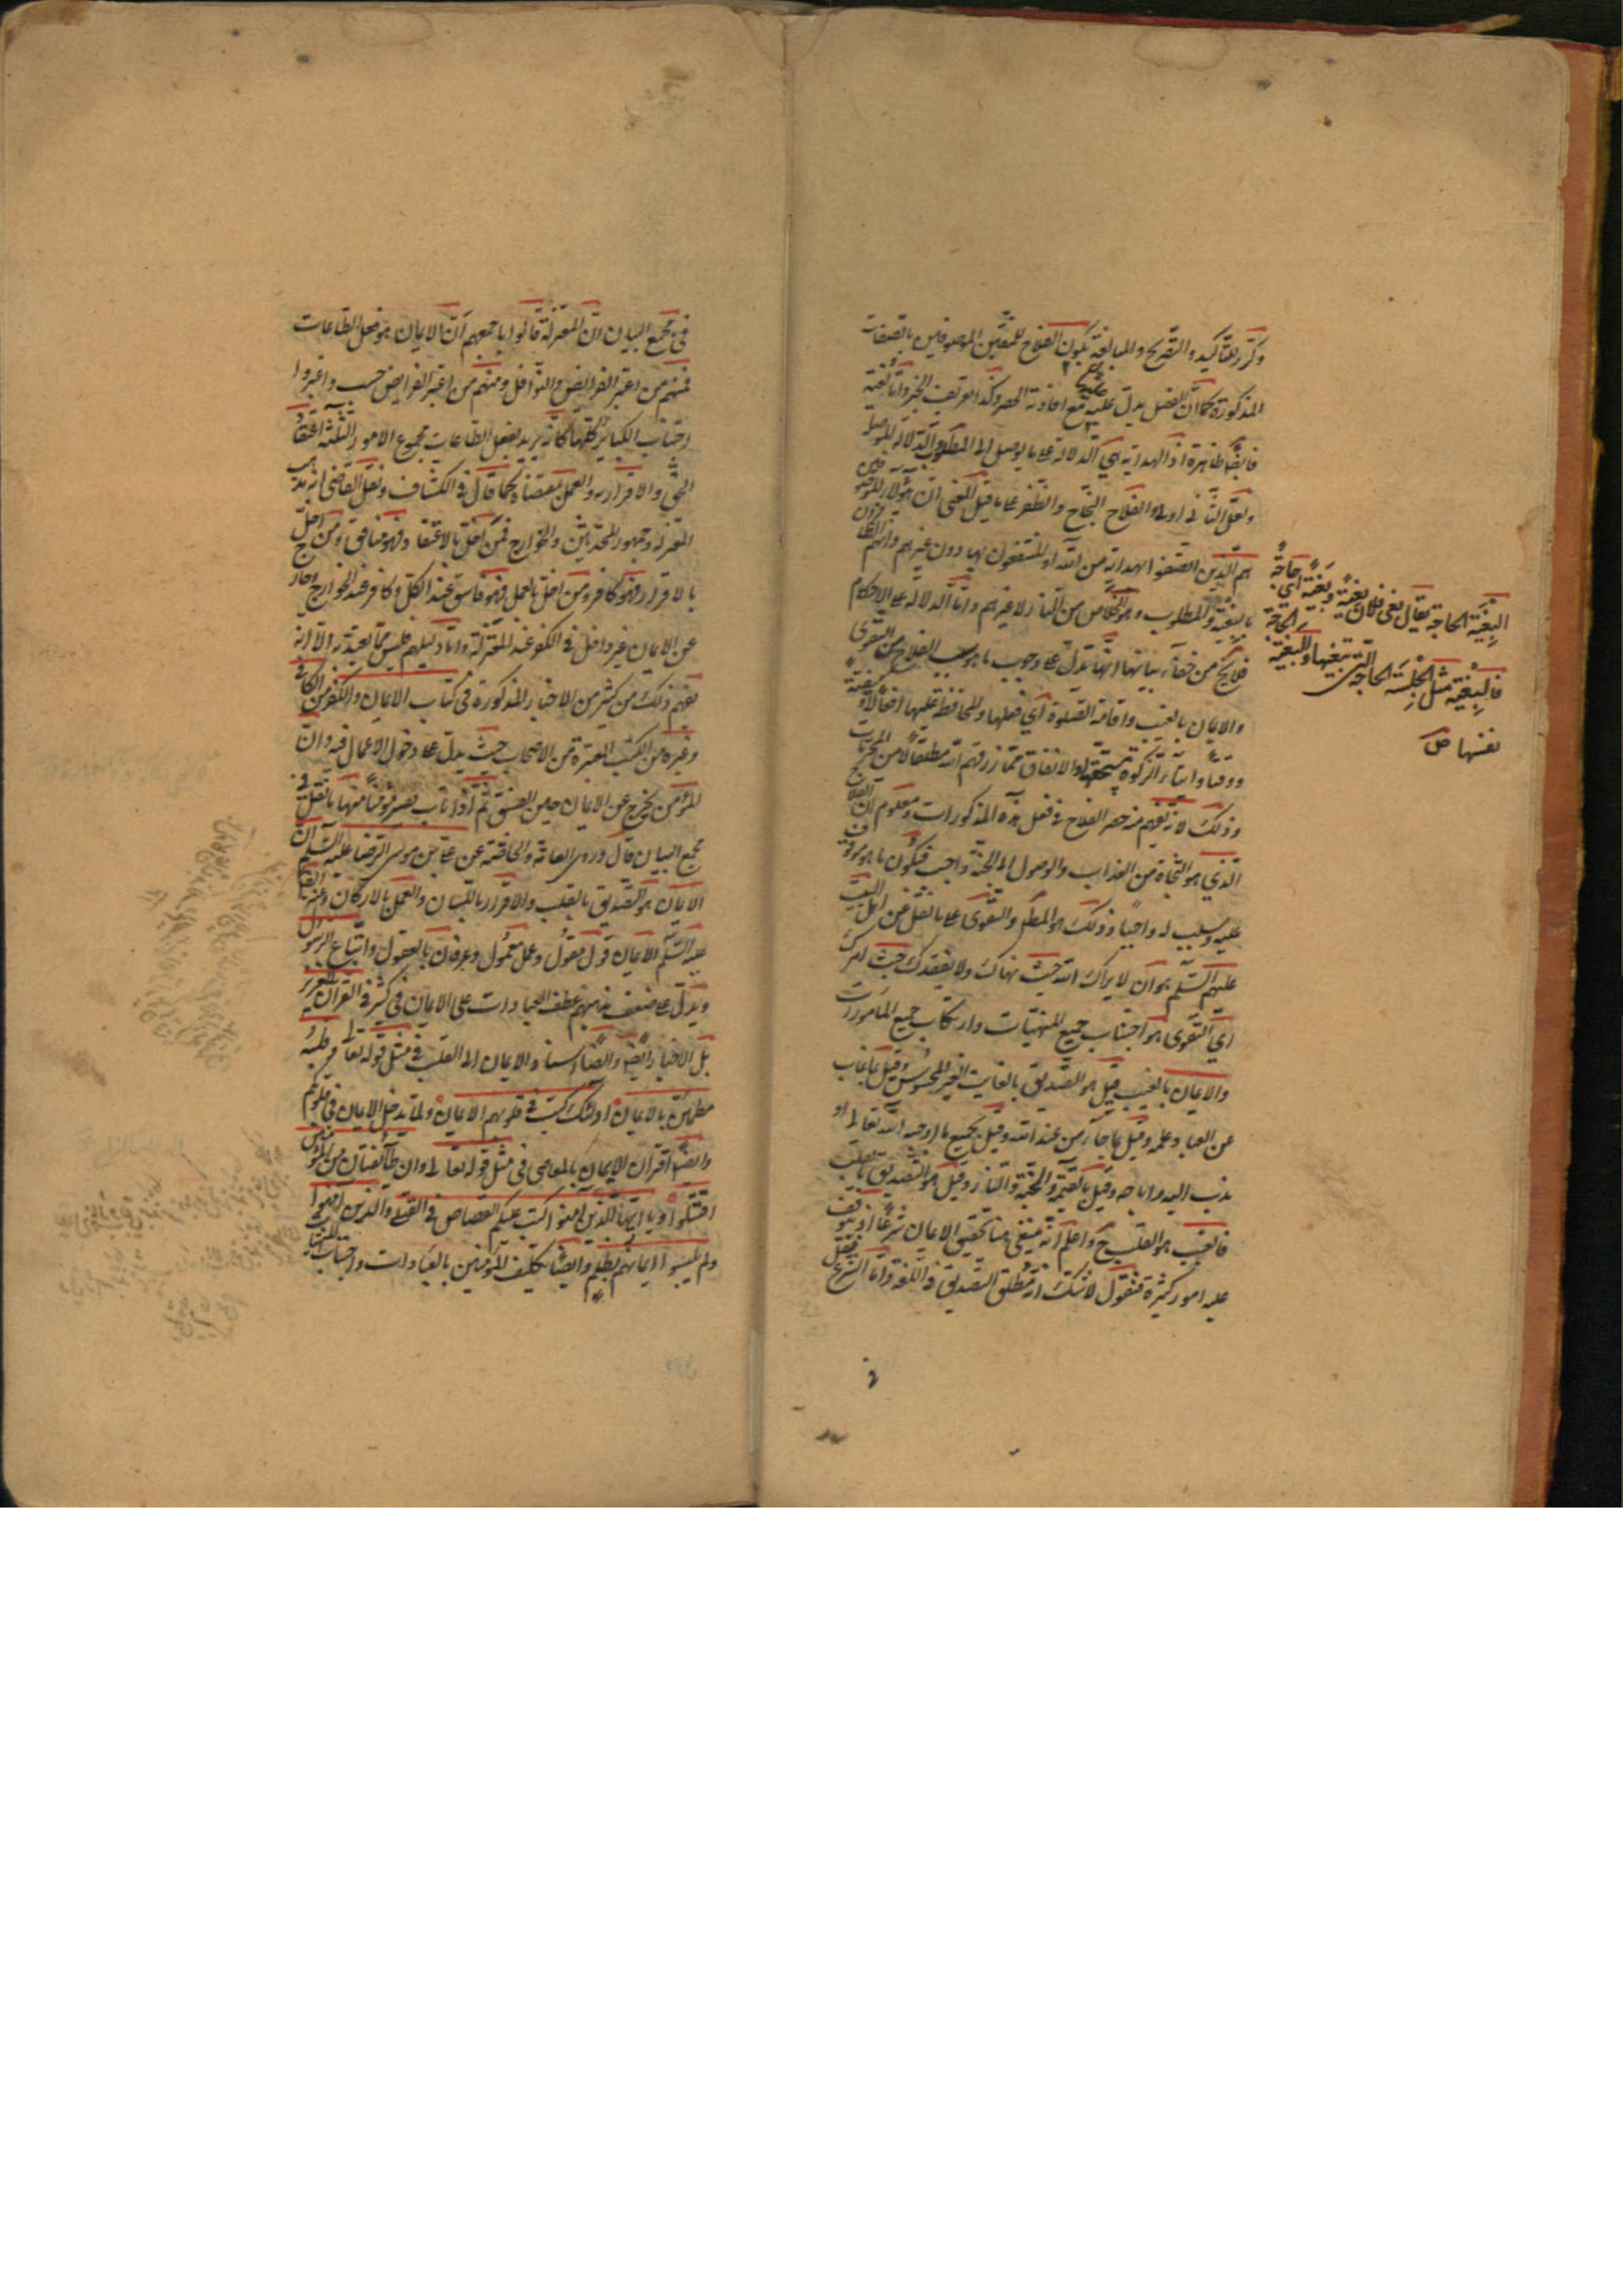 وكرر للتأكيد والتصريح والمبالغة بكون الفلاح للمتقين الموصوفين بالصفات
المذكورة كما ان الفصل يدل عليه مع افادته الحصر وكذا تعريف الخبر واما
فايضا ظاهرة اذ الهداية هي الدلالة على ما يوصل الى المطلوب او الدلالة الموصلة
ولعل الثاني اولى والفلاح النجاح والظفر على ما قيل المعنى ان هؤلاء الموصوفين
هم الذين اتصفوا بهداية من الله او المنتفعون بها دون غيرهم وانهم الظافرون
بالبغية والمطلوب وهو الخلاص من النار لا غيرهم واما الدلالة على الاحكام
فلا يخ من خفاء بيانها انها تدل على وجوب ما هو سبب الفلاح من التقوى
والايمان بالغيب واقامة الصلوة اي فعلها والمحافظة عليها افعالا و
ووقتا وايتاء الزكوة مستحقها والانفاق مما رزقهم الله مطلقا من
وذلك لانه يفهم منه حصر الفلاح في فعل هذه المذكورات ومعلوم ان الفلاح
الذي هو النجاة من العذاب والوصول الى الجنة واجب فيكون ما هو موقوف
عليه وسبب له واجبا وذلك هو المطلم والتقوى على ما نقل عن اهل البيت
عليهم السلم هو ان لا يراك الله حيث نهاك ولا يفقدك حيث امرك
اي التقوى هو اجتناب جميع المنهيات وارتكاب جميع المأمورات
والايمان بالغيب قيل هو التصديق بالغايب الغير المحسوس وقيل بما غاب
عن العباد علمه وقيل بما جاء من عند الله وقيل بجميع ما اوجبه الله تعالى او
ندب اليه او اباحه وقيل بالقيمة والجنة والنار وقيل هو التصديق بالقلب
فالغيب هو القلب ح واعلم انه ينبغي هنا تحقيق الايمان شرعا اذ يتوقف
عليه امور كثيرة فنقول لا شك انه مطلق التصديق في اللغة واما الشرع فنقل
البغية الحاجة يقال بغى فلان بغية وبغية اي حاجة
فالبغية مثل الجلسة الحاجة التي تبغيها والبغية الحاجة
نفسها ص
في مجمع البيان ان المعتزلة قالوا باجمعهم ان الايمان هو فعل الطاعات
فمنهم من اعتبر الفرايض والنوافل ومنهم من اعتبر الفرايض حسب واعتبروا
اجتناب الكباير كلها كانه يريد بفعل الطاعات مجموع الامور الثلثة اعتقاد
الحق والاقرار به والعمل بمقتضاه كما قال في الكشاف ونقل القاضي انه مذهب
المعتزلة وجمهور المحدثين والخوارج فمن اخل بالاعتقاد فهو منافق ومن اخل
بالاقرار فهو كافر ومن اخل بالعمل فهو فاسق عند الكل وكافر عند الخوارج وخارج
عن الايمان غير داخل في الكفر عند المعتزلة واما دليلهم فليس مما يعتد به الا انه
يفهم ذلك من كثير من الاخبار المذكورة في كتاب الايمان والكفر من الكافي
وغيره من الكتب المعتبرة من الاصحاب حيث يدل على دخول الاعمال فيه وان
المؤمن يخرج عن الايمان حين الفسق ثم اذا تاب يصير مؤمنا منها ما نقل في
مجمع البيان قال وروى العامة والخاصة عن علي بن موسى الرضا عليه السلم ان
الايمان هو التصديق بالقلب والاقرار باللسان والعمل بالاركان وعنه ايضا
عليه السلم الايمان قول مقول وعمل معمول وعرفان بالعقول واتباع الرسول
ويدل على ضعف مذهبهم عطف العبادات على الايمان في كثير في القرآن العزيز
بل الاخبار ايضا وايضا اسناد الايمان الى القلب في مثل قوله تعالى وقلبه
مطمئن بالايمان اولئك كتب في قلوبهم الايمان ولما يدخل الايمان في قلوبكم
وايضا اقتران الايمان بالمعاصي في مثل قوله تعالى وان طائفتان من المؤمنين
اقتتلوا ويا ايها الذين امنوا كتب عليكم القصاص في القتلى والذين امنوا
ولم يلبسوا ايمانهم بظلم وايضا تكليف المؤمنين بالعبادات واجتناب